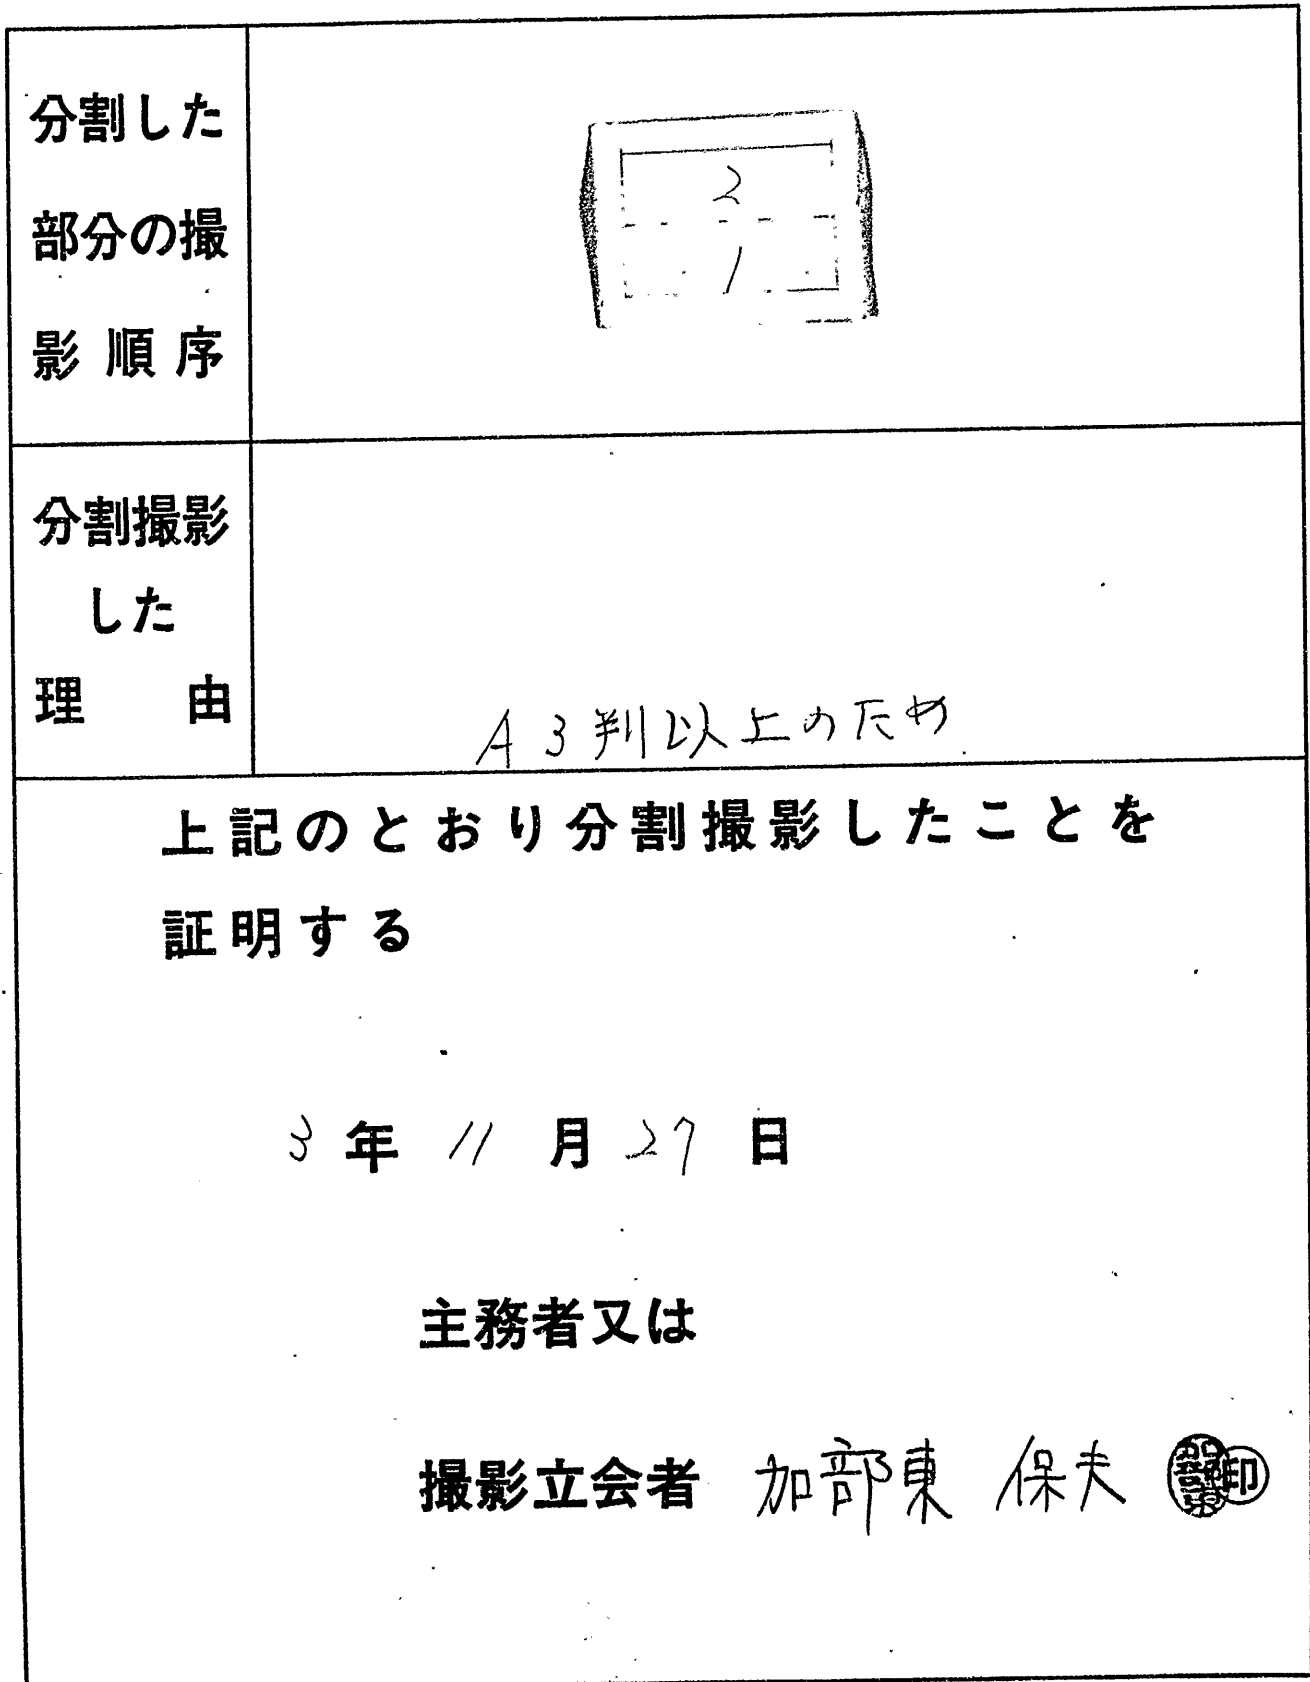 分割した
部分の撮
影順序
2
1
分割撮影
した
理由
A3判以上のため
上記のとおり分割撮影したことを
証明する
3年11月27日
主務者又は
撮影立会者 加部東 保夫 印